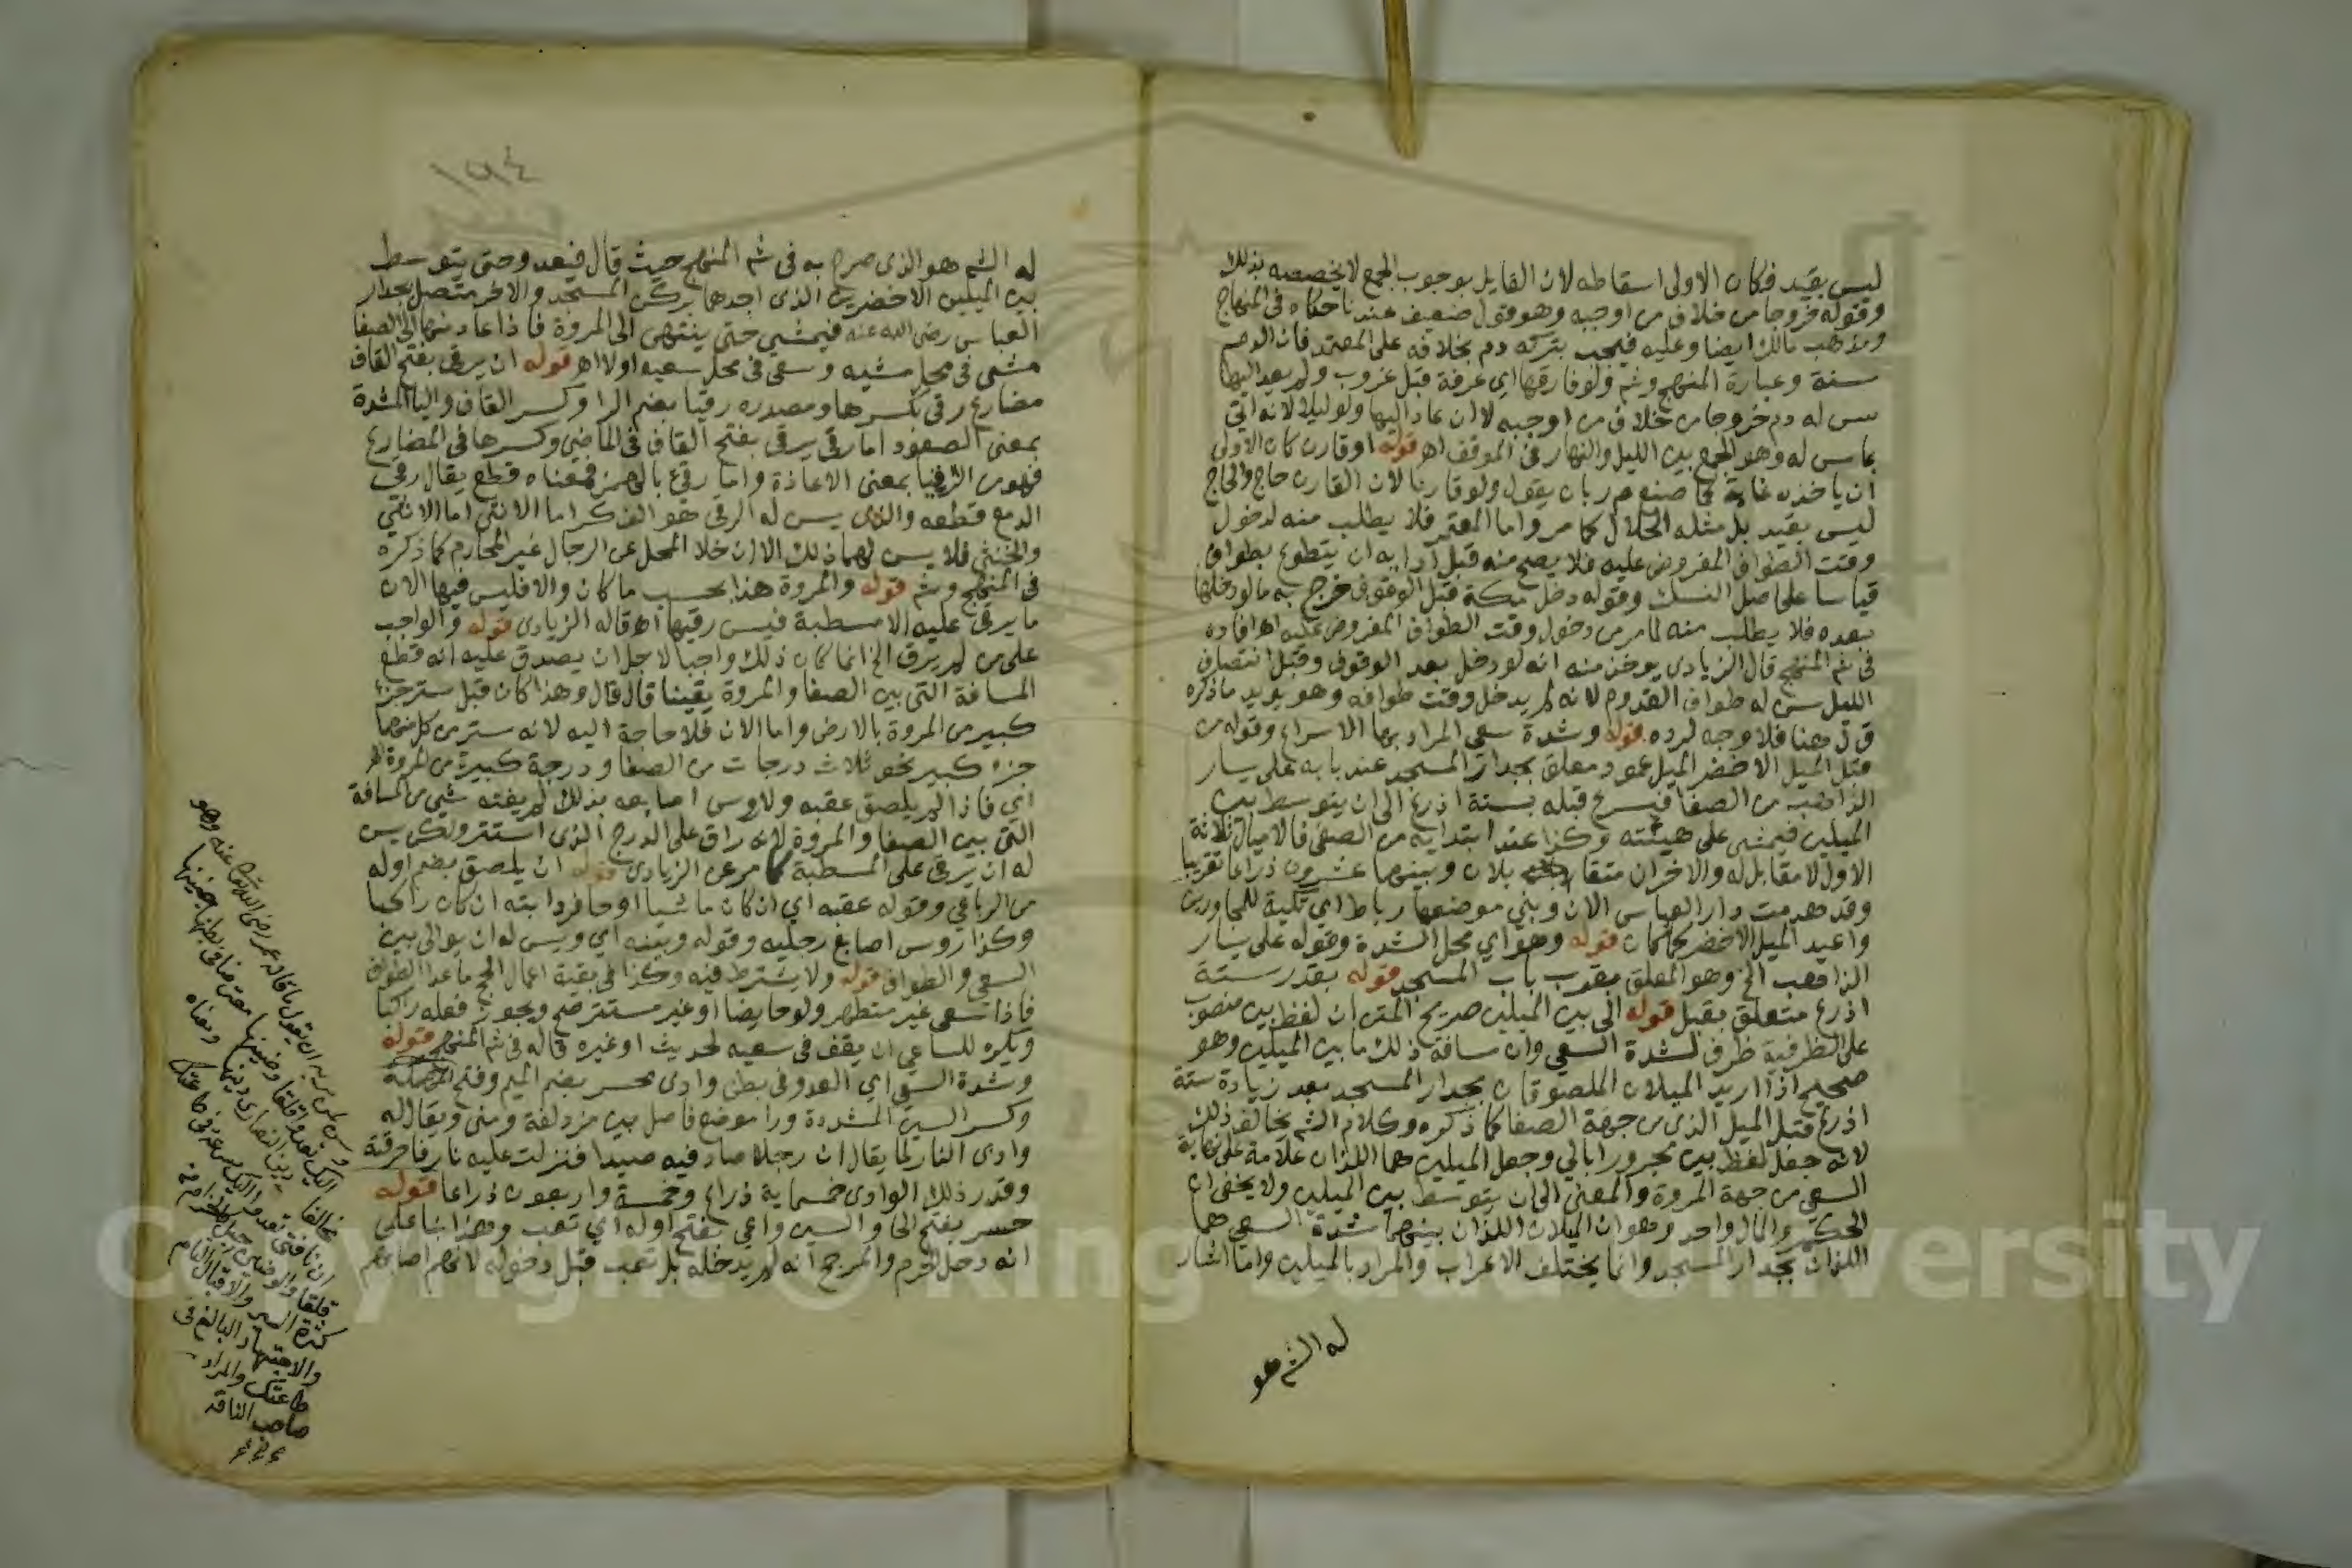 ليس بقيد فكان الاولى اسقاطه لان القايل بوجوب الجمع لا يخصصه بذلك
وقوله خروجا من خلاف من اوجبه وهو قول ضعيف عندنا حكاه في المنهاج
ومذهب مالك ايضا وعليه فيجب بتركه دم بخلافه على المعتمد فان الدم
سنة وعبارة المنهج وشم ولو فارقها اي عرفة قبل غروب ولم يعد اليها
سن له دم خروجا من خلاف من اوجبه لا ان عاد اليها ولو ليلا لانه اتى
بما سن له وهو الجمع بين الليل والنهار في الموقف اهـ قوله او قارن كان الاولى
ان ياخذه غاية كما صنع م ر بان يقول ولو قارنا لان القارن حاج والحاج
ليس بقيد بل مثله الحلال كما مر واما المعتمر فلا يطلب منه لدخول
وقت الطواف المفروض عليه فلا يصح منه قبل ادايه ان يتطوع بطواف
قياسا على اصل النسك وقوله دخل مكة قبل الوقوف خرج به ما لو دخلها
بعده فلا يطلب منه لما مر من دخول وقت الطواف المفروض عليه اهـ افاده
في شم المنهج قال الزيادي يوخذ منه انه لو دخل بعد الوقوف وقبل انتصاف
الليل سن له طواف القدوم لانه لم يدخل وقت طوافه وهو يويد ما ذكره
ق ل هنا فلا وجه لرده قوله وشدة سعي المراد بها الاسراع وقوله من
قبل الميل الاخضر الميل عمود معلق بجدار المسجد عند بابه على يسار
الذاهب من الصفا فيسرع قبله بستة اذرع الى ان يتوسط بين
الميلين فيمشي على هيئته وكذا عند ابتدايه من الصفى فالاميال ثلاثة
الاول لا مقابل له والاخران متقابلان وبينهما عشرون ذراعا تقريبا
وقد هدمت دار العباس الان وبني موضعها رباط اي تكية للمجاورين
واعيد الميل الاخضر كما كان قوله وهو اي محل الشدة وقوله على يسار
الذاهب الخ وهو المعلق بقرب باب المسجد قوله بقدر ستة
اذرع متعلق بقبل قوله الى بين الميلين صريح المتن ان لفظ بين منصوب
على الظرفية ظرف لشدة السعي وان مسافة ذلك ما بين الميلين وهو
صحيح اذا اريد الميلان الملصوقان بجدار المسجد بعد زيادة ستة
اذرع قبل الميل الذي من جهة الصفا كما ذكره وكلام الشم يخالف ذلك
لانه جعل لفظ بين مجرورا بالي وجعل الميلين هما اللذان علامة على نهاية
السعي من جهة المروة والمعنى الى ان يتوسط بين الميلين ولا يخفى ان
الحكم والمال واحد وهو ان الميلان اللذان بينهما شدة السعي هما
اللذان بجدار المسجد وانما يختلف الاعراب والمراد بالميلين وما اشار
له الشم هو
١٩٤
له الشم هو الذي صرح به في شم المنهج حيث قال فيعدو حتى يتوسط
بين الميلين الاخضرين الذي احدهما بركن المسجد والاخر متصل بجدار
العباس رضي الله عنه فيمشي حتى ينتهي الى المروة فاذا عاد منها الى الصفا
مشى في محل مشيه وسعى في محل سعيه اولا اهـ قوله ان يرقى بفتح القاف
مضارع رقي بكسرها ومصدره رقيا بضم الرا وكسر القاف واليا المشدة
بمعنى الصعود اما رقى يرقي بفتح القاف في الماضي وكسرها في المضارع
فهو من الرقيا بمعنى الاعاذة واما رقئ بالهمز فمعناه قطع يقال رقئ
الدمع قطعه والذي يسن له الرقي هو الذكر اما الانثى اما الانثى
والخنثى فلا يسن لهما ذلك الا ان خلا المحل عن الرجال غير المحارم كما ذكره
في المنهج وشم قوله والمروة هذا بحسب ما كان والا فليس فيها الان
ما يرقى عليه الا مسطبة فيسن رقيها اهـ قاله الزيادى قوله والواجب
على من لم يرق الخ انما كان ذلك واجبا لاجل ان يصدق عليه انه قطع
المسافة التي بين الصفا والمروة يقينا قال قال وهذا كان قبل ستر جزء
كبير من المروة بالارض واما الان فلا حاجة اليه لانه ستر من كل منهما
جزء كبير نحو ثلاث درجات من الصفا ودرجة كبيرة من المروة اهـ
اي فاذا لم يلصق عقبه ولاروس اصابعه بذلك لم يفته شي من المسافة
التي بين الصفا والمروة لانه راق على الدرج الذي استتر ولكن يسن
له ان يرقى على المسطبة كما مر عن الزيادى قوله ان يلصق بضم اوله
من الرباعي وقوله عقبه اي ان كان ماشيا او حافر دابته ان كان راكبا
وكذا روس اصابع رجليه وقوله وبينه اي ويسن له ان يوالى بين
السعي والطواف قوله ولا يشترط فيه وكذا في بقية اعمال الحج ما عدا الطواف
فاذا سعى غير متطهر ولو حايضا او غير مستتر صح ويجوز فعله راكبا
ويكره للساعي ان يقف في سعيه لحديث او غيره قاله في شم المنهج قوله
وشدة السعي اي العدو في بطن وادى محسر بضم الميم وفتح المهملة
وكسر السين المشددة ورا موضع فاصل بين مزدلفة ومنى ويقال له
وادى النار لما يقال ان رجلا صاد فيه صيدا فنزلت عليه نار فاحرقته
وقدر ذلك الوادى خمساية ذراع وخمسة واربعون ذراعا قوله
حسر بفتح الحا والسين واعي بفتح اوله اي تعب وهذا بنا على
انه دخل الحرم والمرجح انه لم يدخله بل تعب قبل دخوله لانهم اصابهم
وسن لمن مر به ان يقول ما قاله عمر رضي الله تعالى عنه وهو
اليك تعدو قلقا وضينها معترضا في بطنها جنينها
مخالفا دين النصارى دينها ومعناه
ان ناقتى تعدو اليك مسرعة في طاعتك
قلقا والوضين حبل كالحزام من
كثرة السير والاقبال التام
والاجتهاد البالغ في
طاعتك والمراد
صاحب الناقة